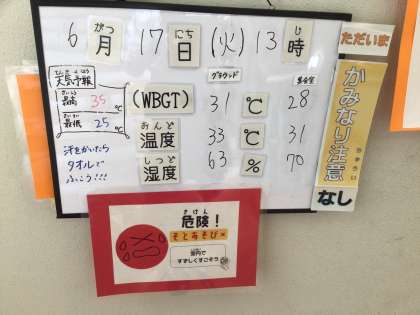 6月 17日 (火) 13時
がつ にち じ
ただいま
かみなり注意
ちゅうい
なし
天気予報
最高 35 ℃
最低 25 ℃
グラウンド
(WBGT) 31 ℃ 28
おんど
温度 33 ℃ 31
しつど
湿度 63 % 70
汗をかいたら
タオルで
ふこう!!!
きけん
危険!
そとあそび×
室内で
すずしくすごそう